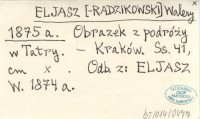 ELJASZ [-RADZIKOWSKI] Walery
1875 a. Obrazek z podróży
w Tatry. – Kraków. Ss. 41,
cm x . Odb. z: ELJASZ
W. 1874 a.